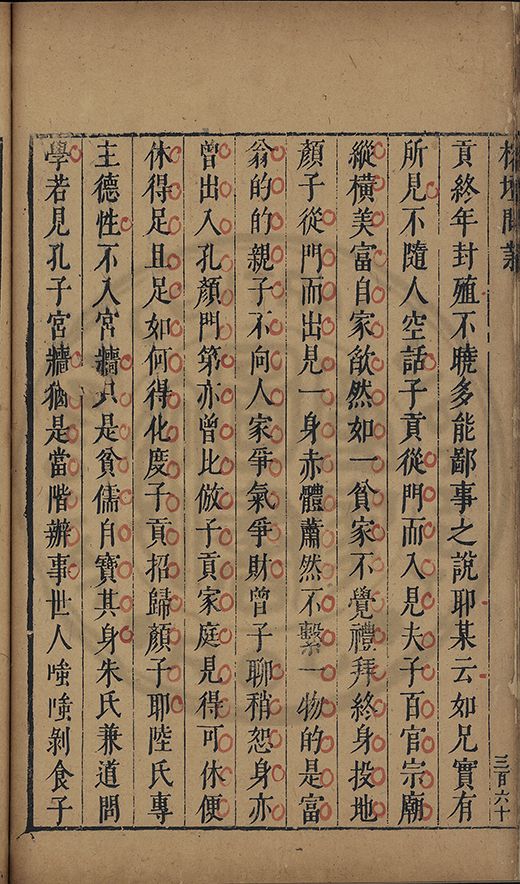 榕壇問業
三百六十
貢終年封殖不曉多能鄙事之說耶某云如兄實有
所見不隨人空話子貢從門而入見夫子百官宗廟
縱橫美富自家欿然如一貧家不覺禮拜終身投地
顏子從門而出見一身赤體蕭然不繫一物的是富
翁的的親子不向人家爭氣爭財曾子聊稍恕身亦
曾出入孔顏門第亦曾比倣子貢家庭見得可休便
休得足且足如何得化度子貢招歸顏子耶陸氏專
主德性不入宮牆只是貧儒自寶其身朱氏兼道問
學若見孔子宮牆猶是當階辦事世人嗤嗤剝食子